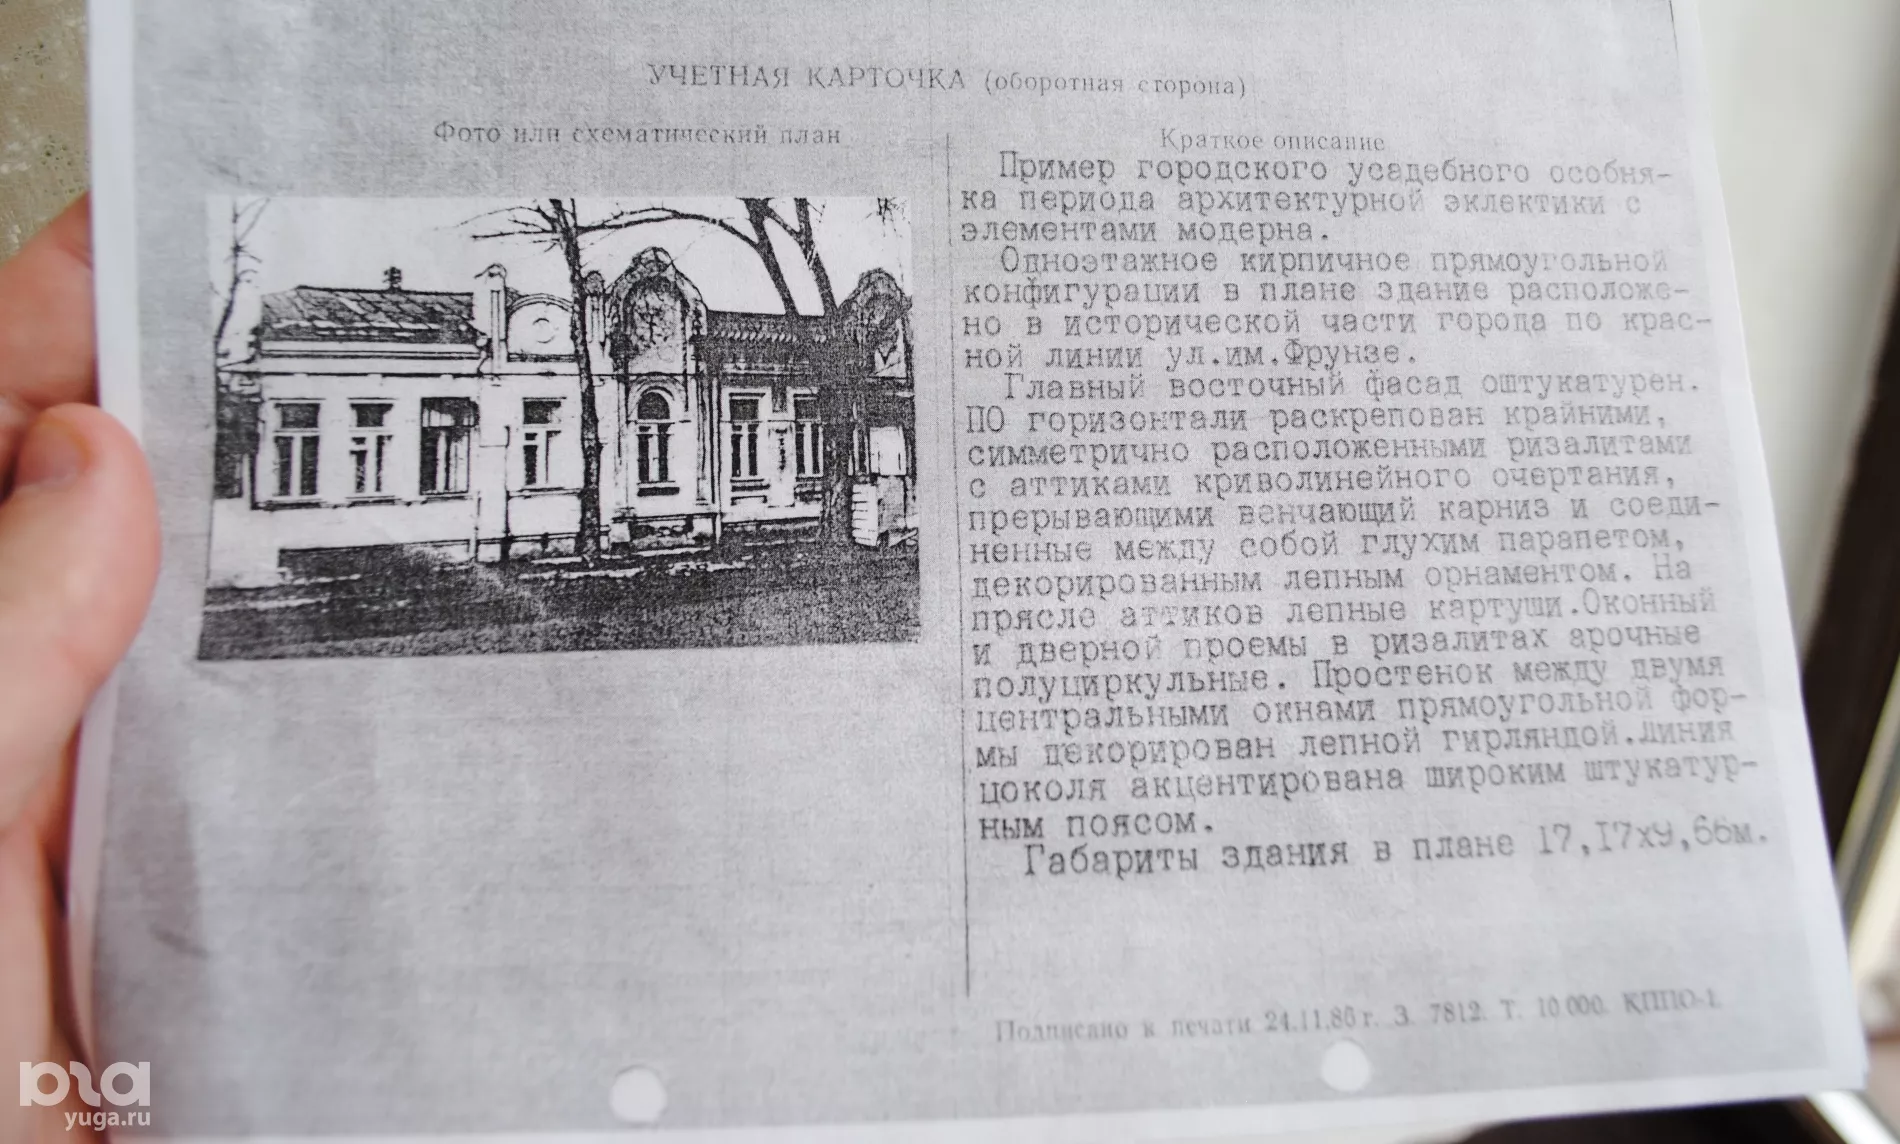 УЧЕТНАЯ КАРТОЧКА (оборотная сторона)
Фото или схематический план
Краткое описание
Пример городского усадебного особня-
ка периода архитектурной эклектики с
элементами модерна.
Одноэтажное кирпичное прямоугольной
конфигурации в плане здание расположе-
но в исторической части города по крас-
ной линии ул.им.Фрунзе.
Главный восточный фасад оштукатурен.
ПО горизонтали раскрепован крайними,
симметрично расположенными ризалитами
с аттиками криволинейного очертания,
прерывающими венчающий карниз и соеди-
ненные между собой глухим парапетом,
декорированным лепным орнаментом. На
прясле аттиков лепные картуши.Оконный
и дверной проемы в ризалитах арочные
полуциркульные. Простенок между двумя
центральными окнами прямоугольной фор-
мы декорирован лепной гирляндой.Линия
цоколя акцентирована широким штукатур-
ным поясом.
Габариты здания в плане 17,17х9,66м.
Подписано к печати 24.11.86 г. З. 7812. Т. 10 000. КППО-1.
юга
yuga.ru